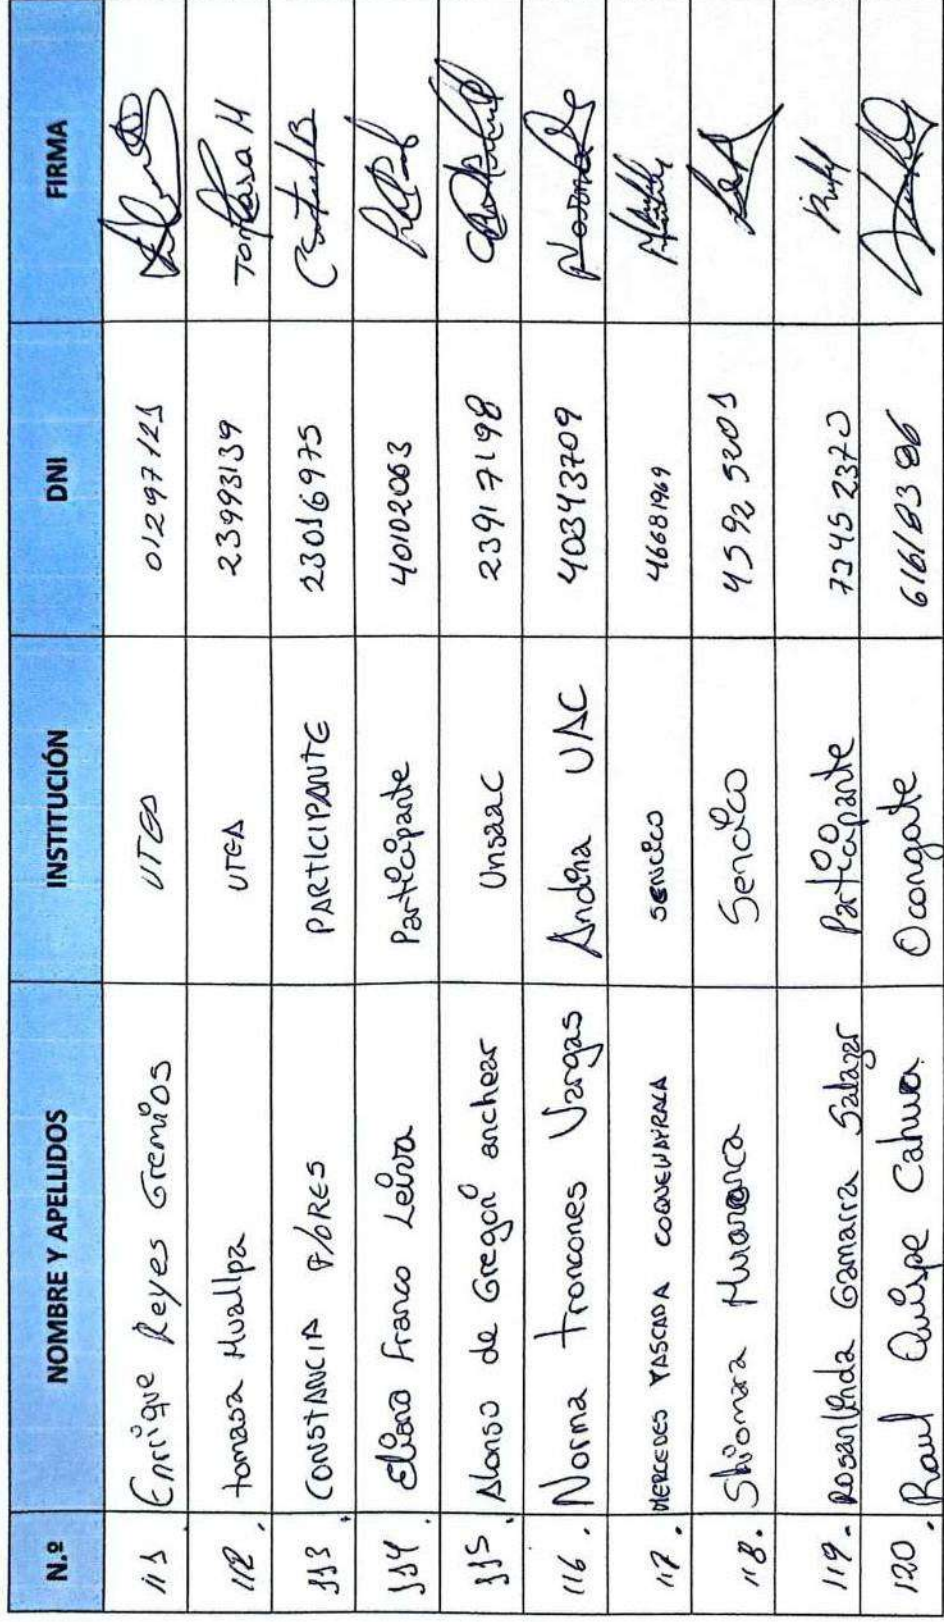 N.º NOMBRE Y APELLIDOS INSTITUCIÓN DNI FIRMA
111. Enrique Reyes Gremios UTEA 01297121
112. tomasa Huallpa UTEA 23993139 Tomasa H
113. CONSTANCIA FLORES PARTICIPANTE 23016975
114. Eliana Franco Leiva Participante 40102063
115. Alonso de Gregori anchear Unsaac 23917198
116. Norma Troncones Vargas Andina UAC 40343709 Norma
117. MERCEDES COQUEWAYRALA sencico 46681969
118. Shiomara Huaranca Sencico 45925201
119. Gamarra Salazar Participante
120. Raul Quispe Cahua Ocongate